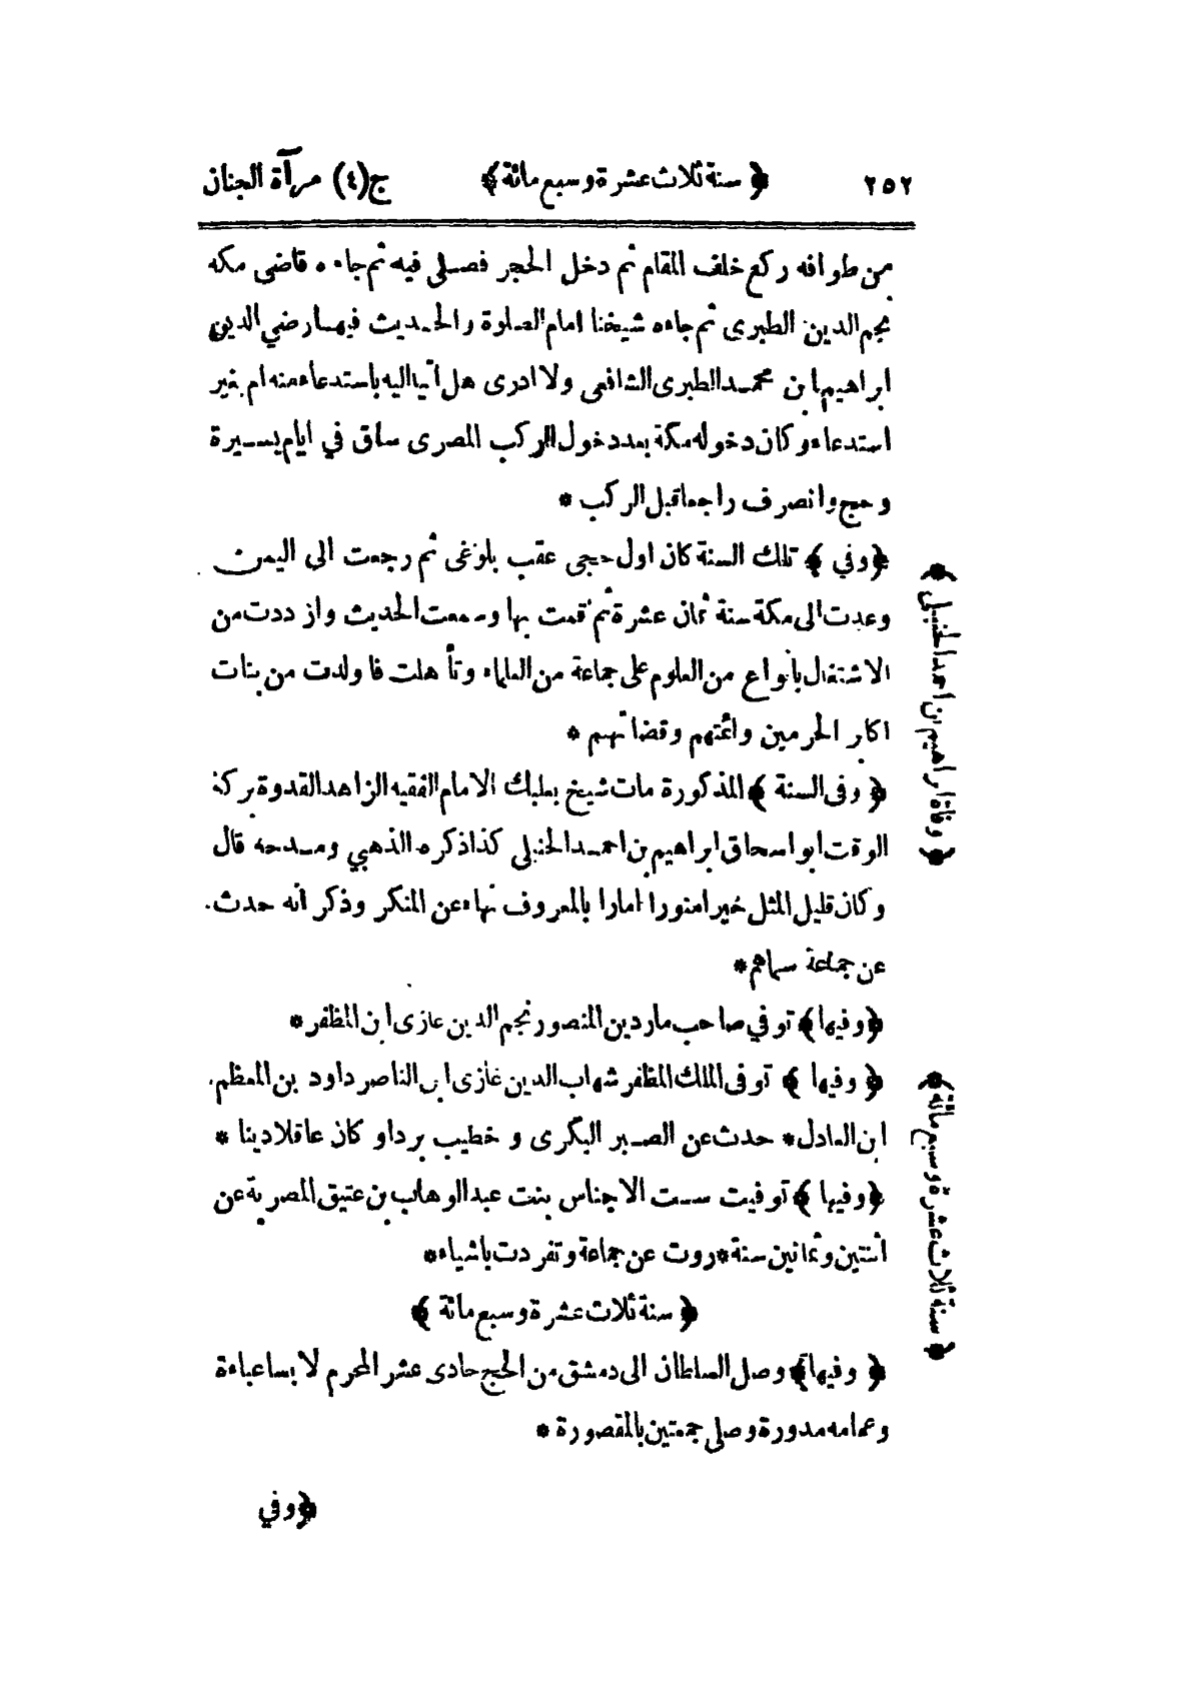 ٢٥٢ ﴿ سنة ثلاث عشرة وسبع مائة ﴾ ج(٤) مرآة الجنان
من طوافه ركع خلف المقام ثم دخل الحجر فصلى فيه ثم جاءه قاضى مكه
نجم الدين الطبرى ثم جاءه شيخنا امام الصلوة والحديث فيها رضي الدين
ابراهيم ابن محمد الطبرى الشافعى ولا ادرى هل اتيا اليه باستدعاء منه ام بغير
استدعاء وكان دخوله مكة بعد دخول الركب المصرى ساق في ايام يسيرة
وحج وانصرف راجعا قبل الركب *
﴿ وفي ﴾ تلك السنة كان اول حجى عقب بلوغى ثم رجعت الى اليمن
وعدت الى مكة سنة ثمان عشرة ثم قمت بها وسمعت الحديث وازددت من
الاشتغال بأنواع من العلوم على جماعة من العلماء وتأهلت فاولدت من بنات
اكابر الحرمين وائمتهم وقضاتهم *
﴿ وفى السنة ﴾ المذكورة مات شيخ بعلبك الامام الفقيه الزاهد القدوة بركة
الوقت ابو اسحاق ابراهيم بن احمد الحنبلى كذا ذكره الذهبي ومدحه قال
وكان قليل المثل خيرا منورا امارا بالمعروف نهاء عن المنكر وذكر انه حدث
عن جماعة سماهم *
﴿ وفيها ﴾ توفي صاحب ماردين المنصور نجم الدين غازى ابن المظفر *
﴿ وفيها ﴾ توفى الملك المظفر شهاب الدين غازى ابن الناصر داود بن المعظم
ابن العادل * حدث عن الصدر البكرى و خطيب بردا و كان عاقلا دينا *
﴿ وفيها ﴾ توفيت ست الاجناس بنت عبد الوهاب بن عتيق المصرية عن
اثنتين وثمانين سنة * روت عن جماعة وتفردت باشياء *
﴿ سنة ثلاث عشرة وسبع مائة ﴾
﴿ وفيها ﴾ وصل السلطان الى دمشق من الحج حادى عشر المحرم لا بسا عباءة
وعمامه مدورة وصلى جمعتين بالمقصورة *
﴿ وفي
﴿ وفاة ابراهيم بن احمد الحنبلى ﴾
﴿ سنة ثلاث عشرة وسبع مائة ﴾